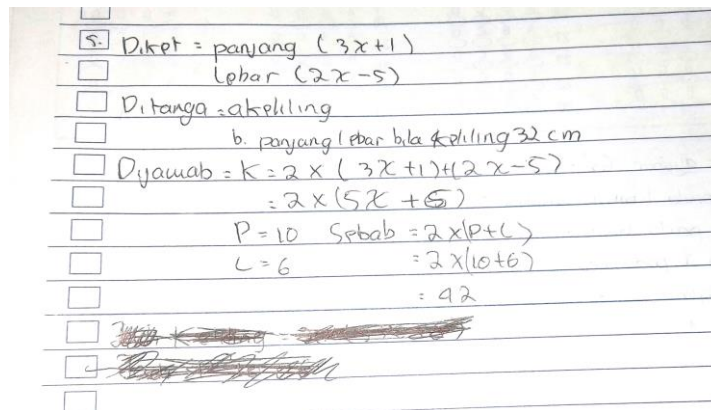 5. Diket = panjang (3x+1)
lebar (2x-5)
Ditanya = a keliling
b. panjang lebar bila keliling 32 cm
Dijawab = K = 2 x (3x+1)+(2x-5)
= 2 x (5x + 6)
P = 10 Sebab = 2 x (P+L)
L = 6 = 2 x (10+6)
: 92